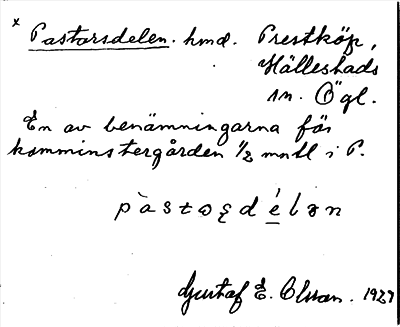 x Pastorsdelen. hmd. Prestköp,
Hällestads
sn. Ögl.
En av benämningarna för
komministergården 1/2 mntl i P.
Gustaf E. Olsson. 1929